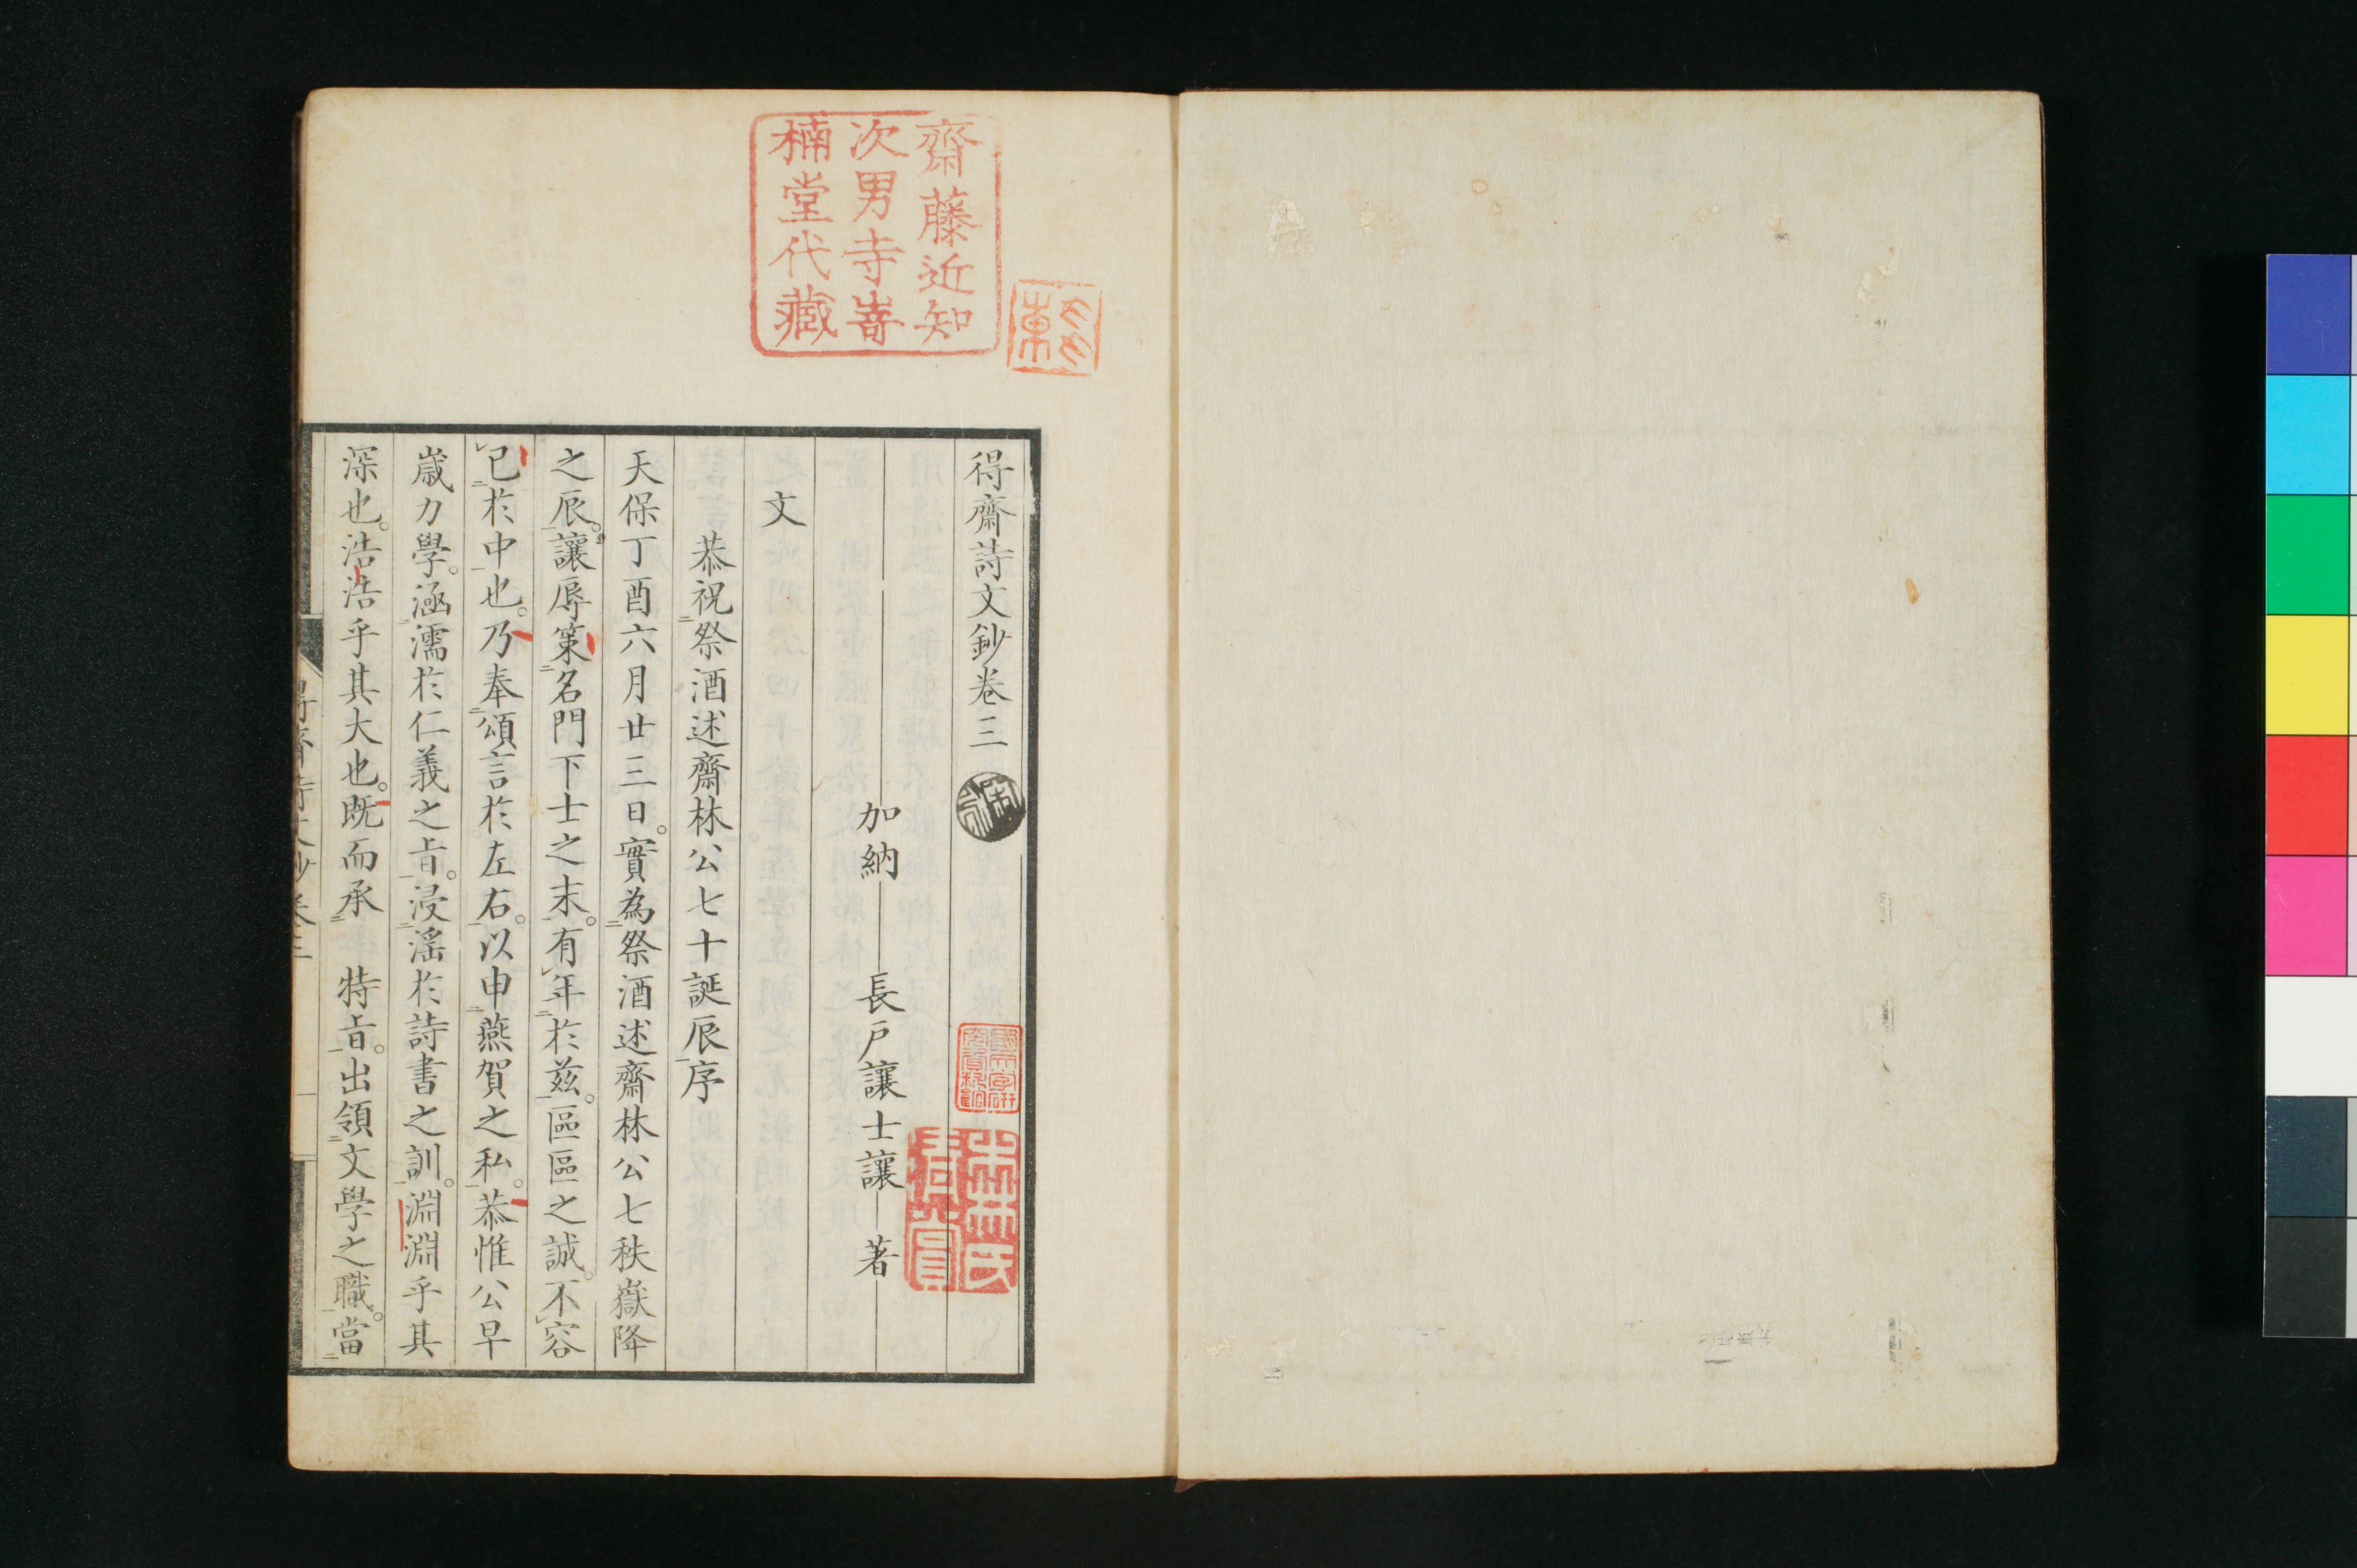 齋藤近知
次男寺嵜
楠堂代藏
得齋詩文鈔卷三
加納 長戸讓士讓 著
文
恭祝祭酒述齋林公七十誕辰序
天保丁酉六月廿三日。實為祭酒述齋林公七秩嶽降
之辰。讓辱策名門下士之末。有年於茲。區區之誠。不容
已於中也。乃奉頌言於左右。以申燕賀之私。恭惟公早
歲力學。涵濡於仁義之旨。浸滛於詩書之訓。淵淵乎其
深也。浩浩乎其大也。既而承 特旨。出領文學之職。當